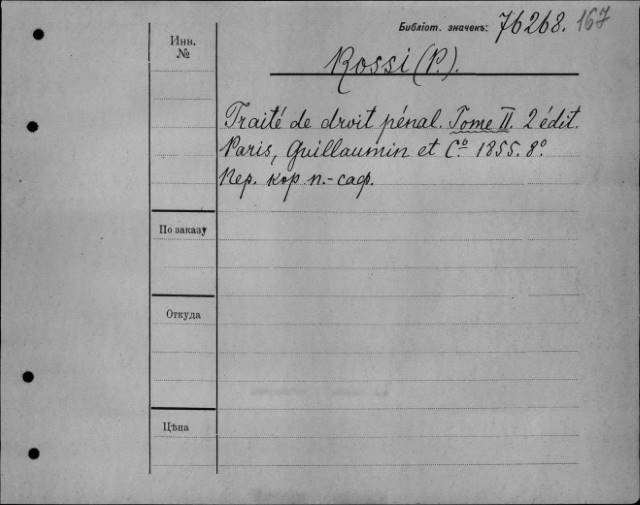 Библіот. значекъ: 76268. 167
Инв.
№
Rossi (P.).
Traité de droit pénal. Tome II. 2 édit.
Paris, Guillaumin et Cº 1855. 8º.
Пер. кор п.-саф.
По заказу
Откуда
Цѣна